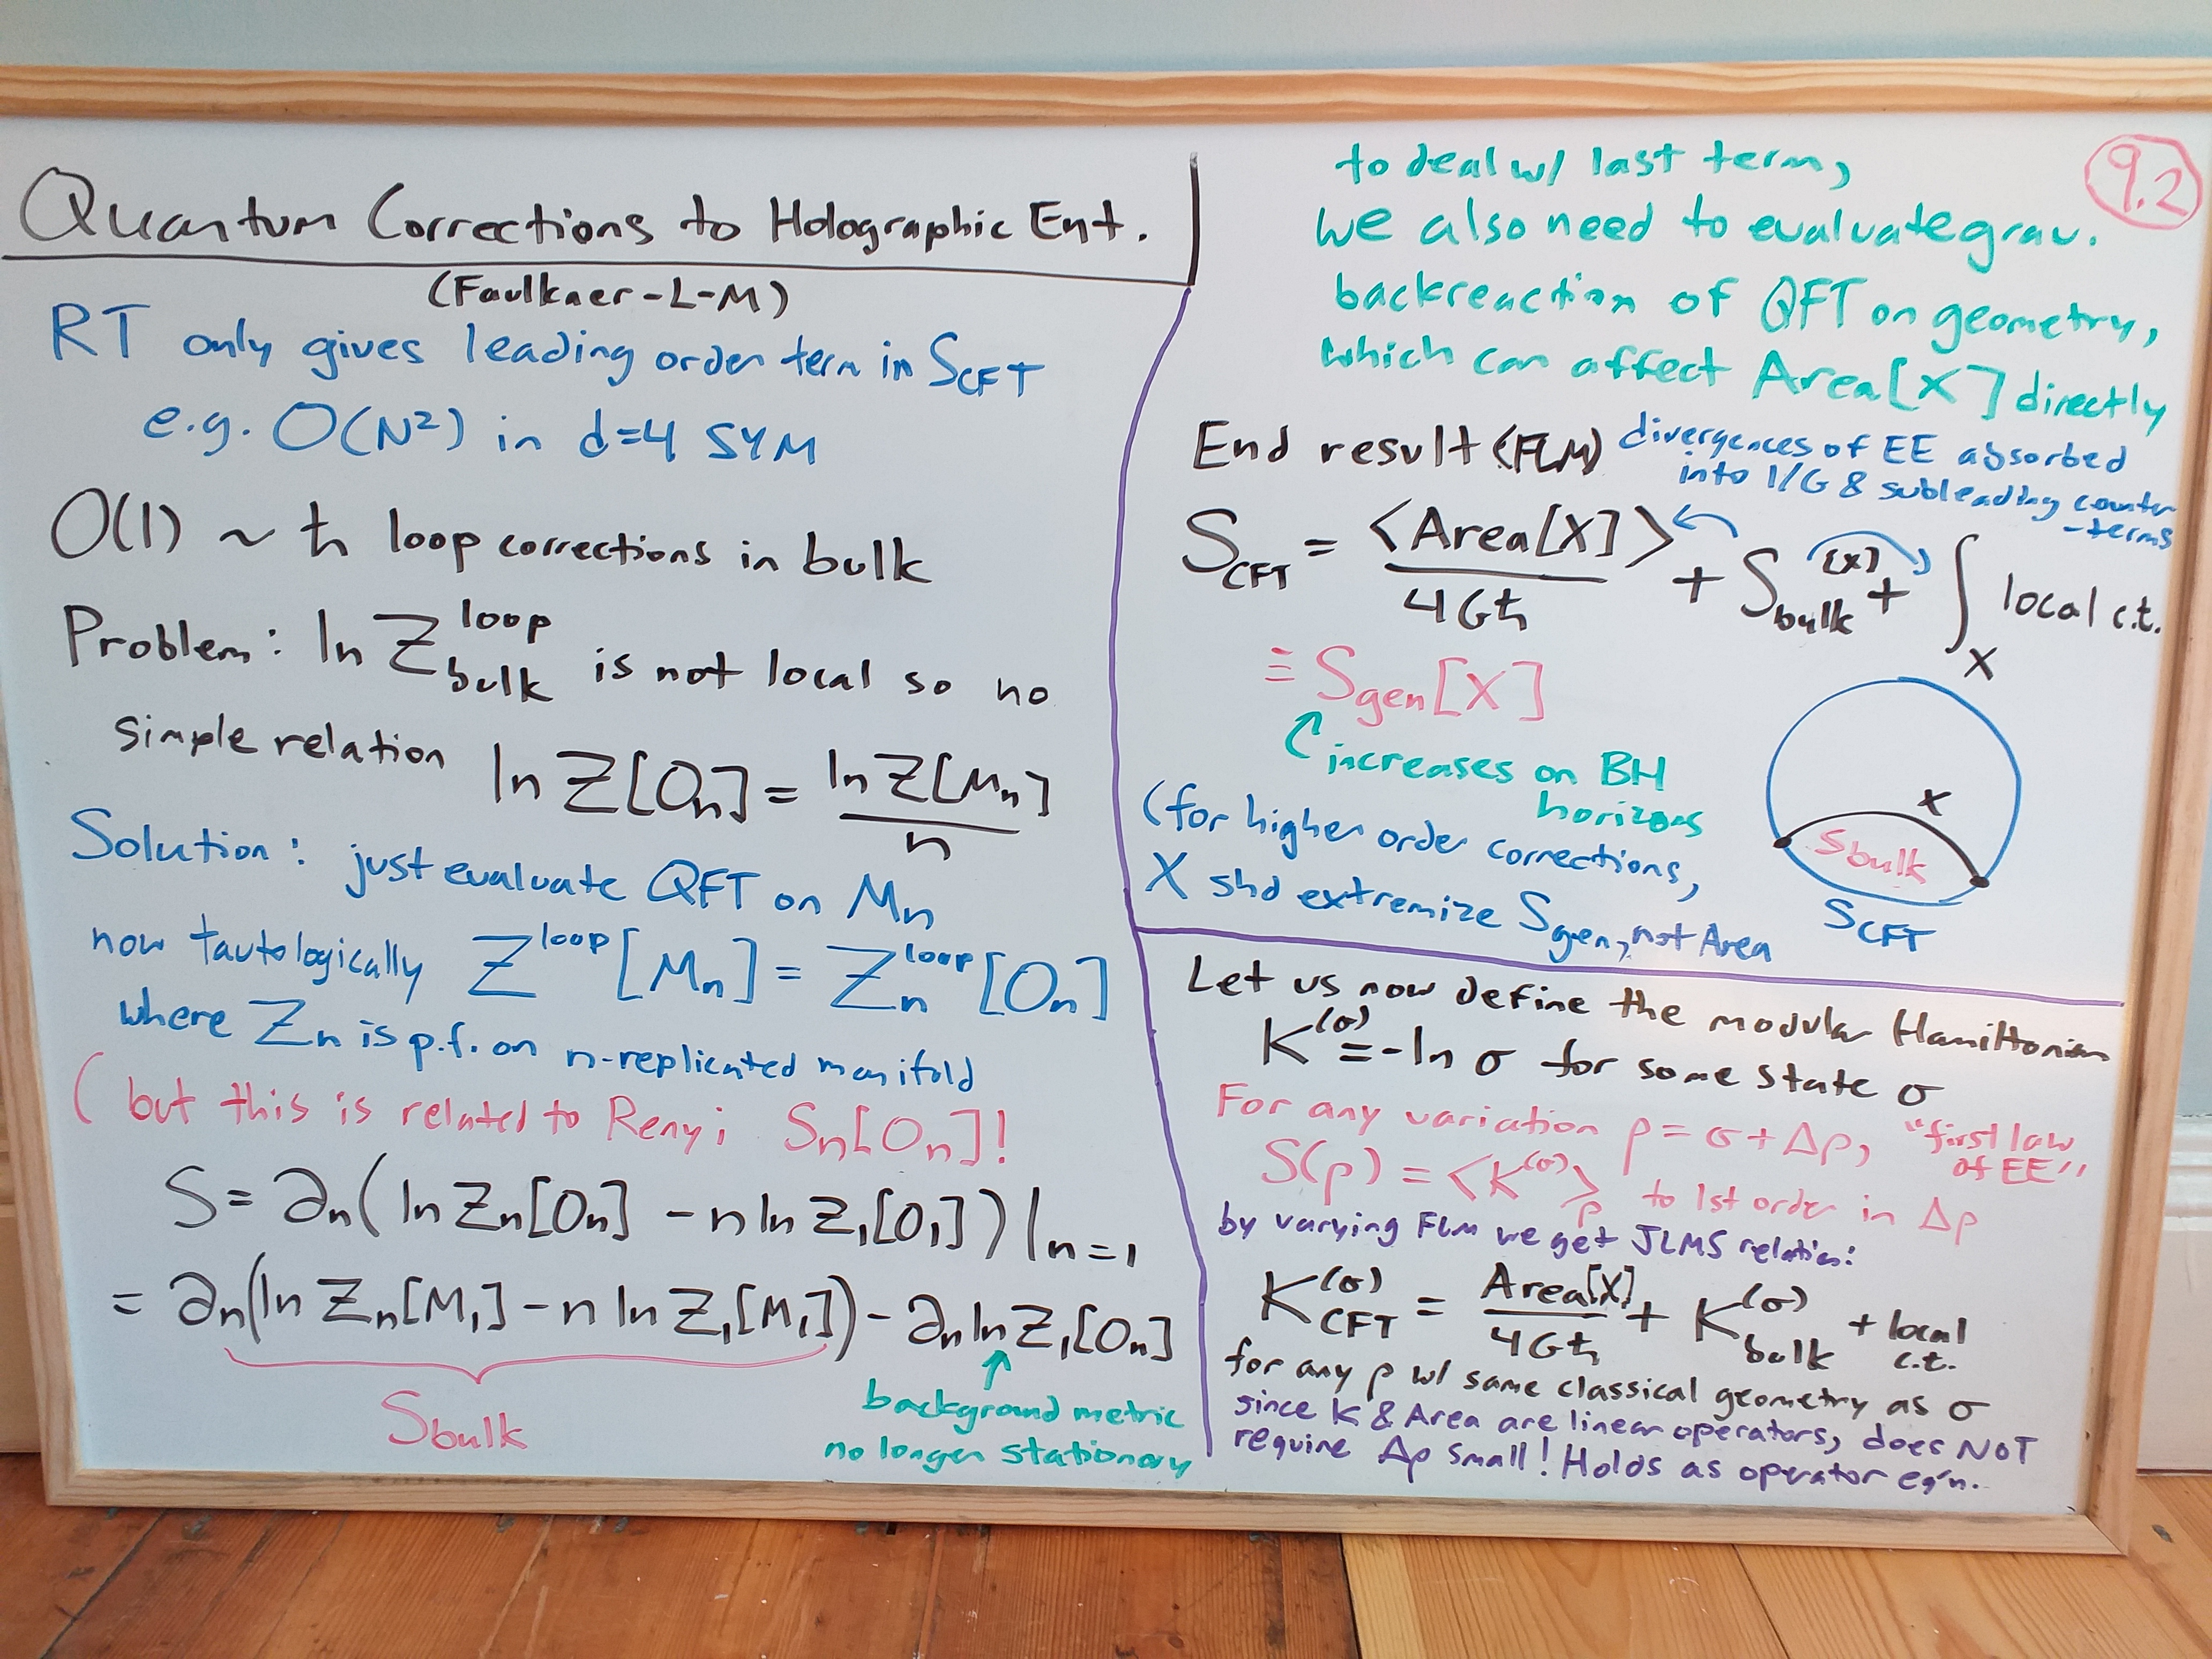 Quantum Corrections to Holographic Ent.
(Faulkner-L-M)
RT only gives leading order term in S_CFT
e.g. O(N²) in d=4 SYM
O(1) ~ ħ loop corrections in bulk
Problem: ln Z_bulk^loop is not local so no
simple relation ln Z[O_n] = ln Z[M_n] / n
Solution: just evaluate QFT on M_n
now tautologically Z^loop[M_n] = Z_n^loop[O_n]
where Z_n is p.f. on n-replicated manifold
(but this is related to Renyi S_n[O_n]!
S = ∂_n(ln Z_n[O_n] - n ln Z_1[O_1])|_n=1
= ∂_n(ln Z_n[M_1] - n ln Z_1[M_1]) - ∂_n ln Z_1[O_n]
S_bulk
background metric
no longer stationary
9.2
to deal w/ last term,
we also need to evaluate grav.
backreaction of QFT on geometry,
which can affect Area[X] directly
End result (FLM)
divergences of EE absorbed
into 1/G & subleading counter
-terms
S_CFT = <Area[X]> / 4Għ + S_bulk[X] + ∫_X local c.t.
≡ S_gen[X]
increases on BH
horizons
(for higher order corrections,
X shd extremize S_gen, not Area
X
S_bulk
S_CFT
Let us now define the modular Hamiltonian
K^(σ) = -ln σ for some state σ
For any variation ρ = σ + Δρ, "first law
of EE"
S(ρ) = <K^(σ)>_ρ to 1st order in Δρ
by varying FLM we get JLMS relation:
K_CFT^(σ) = Area[X] / 4Għ + K_bulk^(σ) + local
c.t.
for any ρ w/ same classical geometry as σ
since K & Area are linear operators, does NOT
require Δρ small! Holds as operator eq'n.